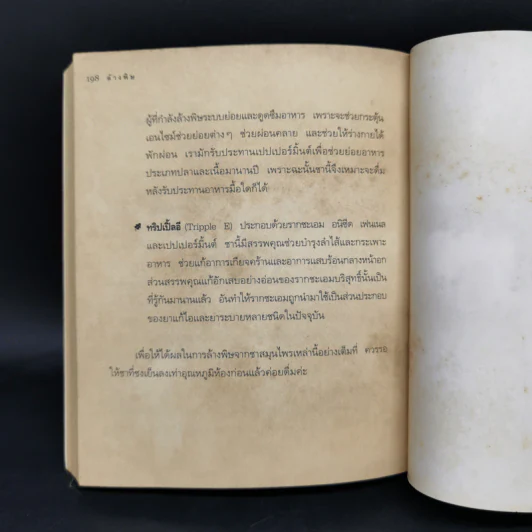 198 ล้างพิษ
ผู้ที่กำลังล้างพิษระบบย่อยและดูดซึมอาหาร เพราะจะช่วยกระตุ้น
เอนไซม์ช่วยย่อยต่างๆ ช่วยผ่อนคลาย และช่วยให้ร่างกายได้
พักผ่อน เรามักรับประทานเปปเปอร์มิ้นต์เพื่อช่วยย่อยอาหาร
ประเภทปลาและเนื้อมานานปี เพราะฉะนั้นชานี้จึงเหมาะจะดื่ม
หลังรับประทานอาหารมื้อใดก็ได้
ทริปเปิ้ลอี (Tripple E) ประกอบด้วยรากชะเอม อนิซีด เฟนเนล
และเปปเปอร์มิ้นต์ ชานี้มีสรรพคุณช่วยบำรุงลำไส้และกระเพาะ
อาหาร ช่วยแก้อาการเกียจคร้านและอาการแสบร้อนกลางหน้าอก
ส่วนสรรพคุณแก้อักเสบอย่างอ่อนของรากชะเอมบริสุทธิ์นั้นเป็น
ที่รู้กันมานานแล้ว อันทำให้รากชะเอมถูกนำมาใช้เป็นส่วนประกอบ
ของยาแก้ไอและยาระบายหลายชนิดในปัจจุบัน
เพื่อให้ได้ผลในการล้างพิษจากชาสมุนไพรเหล่านี้อย่างเต็มที่ ควรรอ
ให้ชาที่ชงเย็นลงเท่าอุณหภูมิห้องก่อนแล้วค่อยดื่มค่ะ